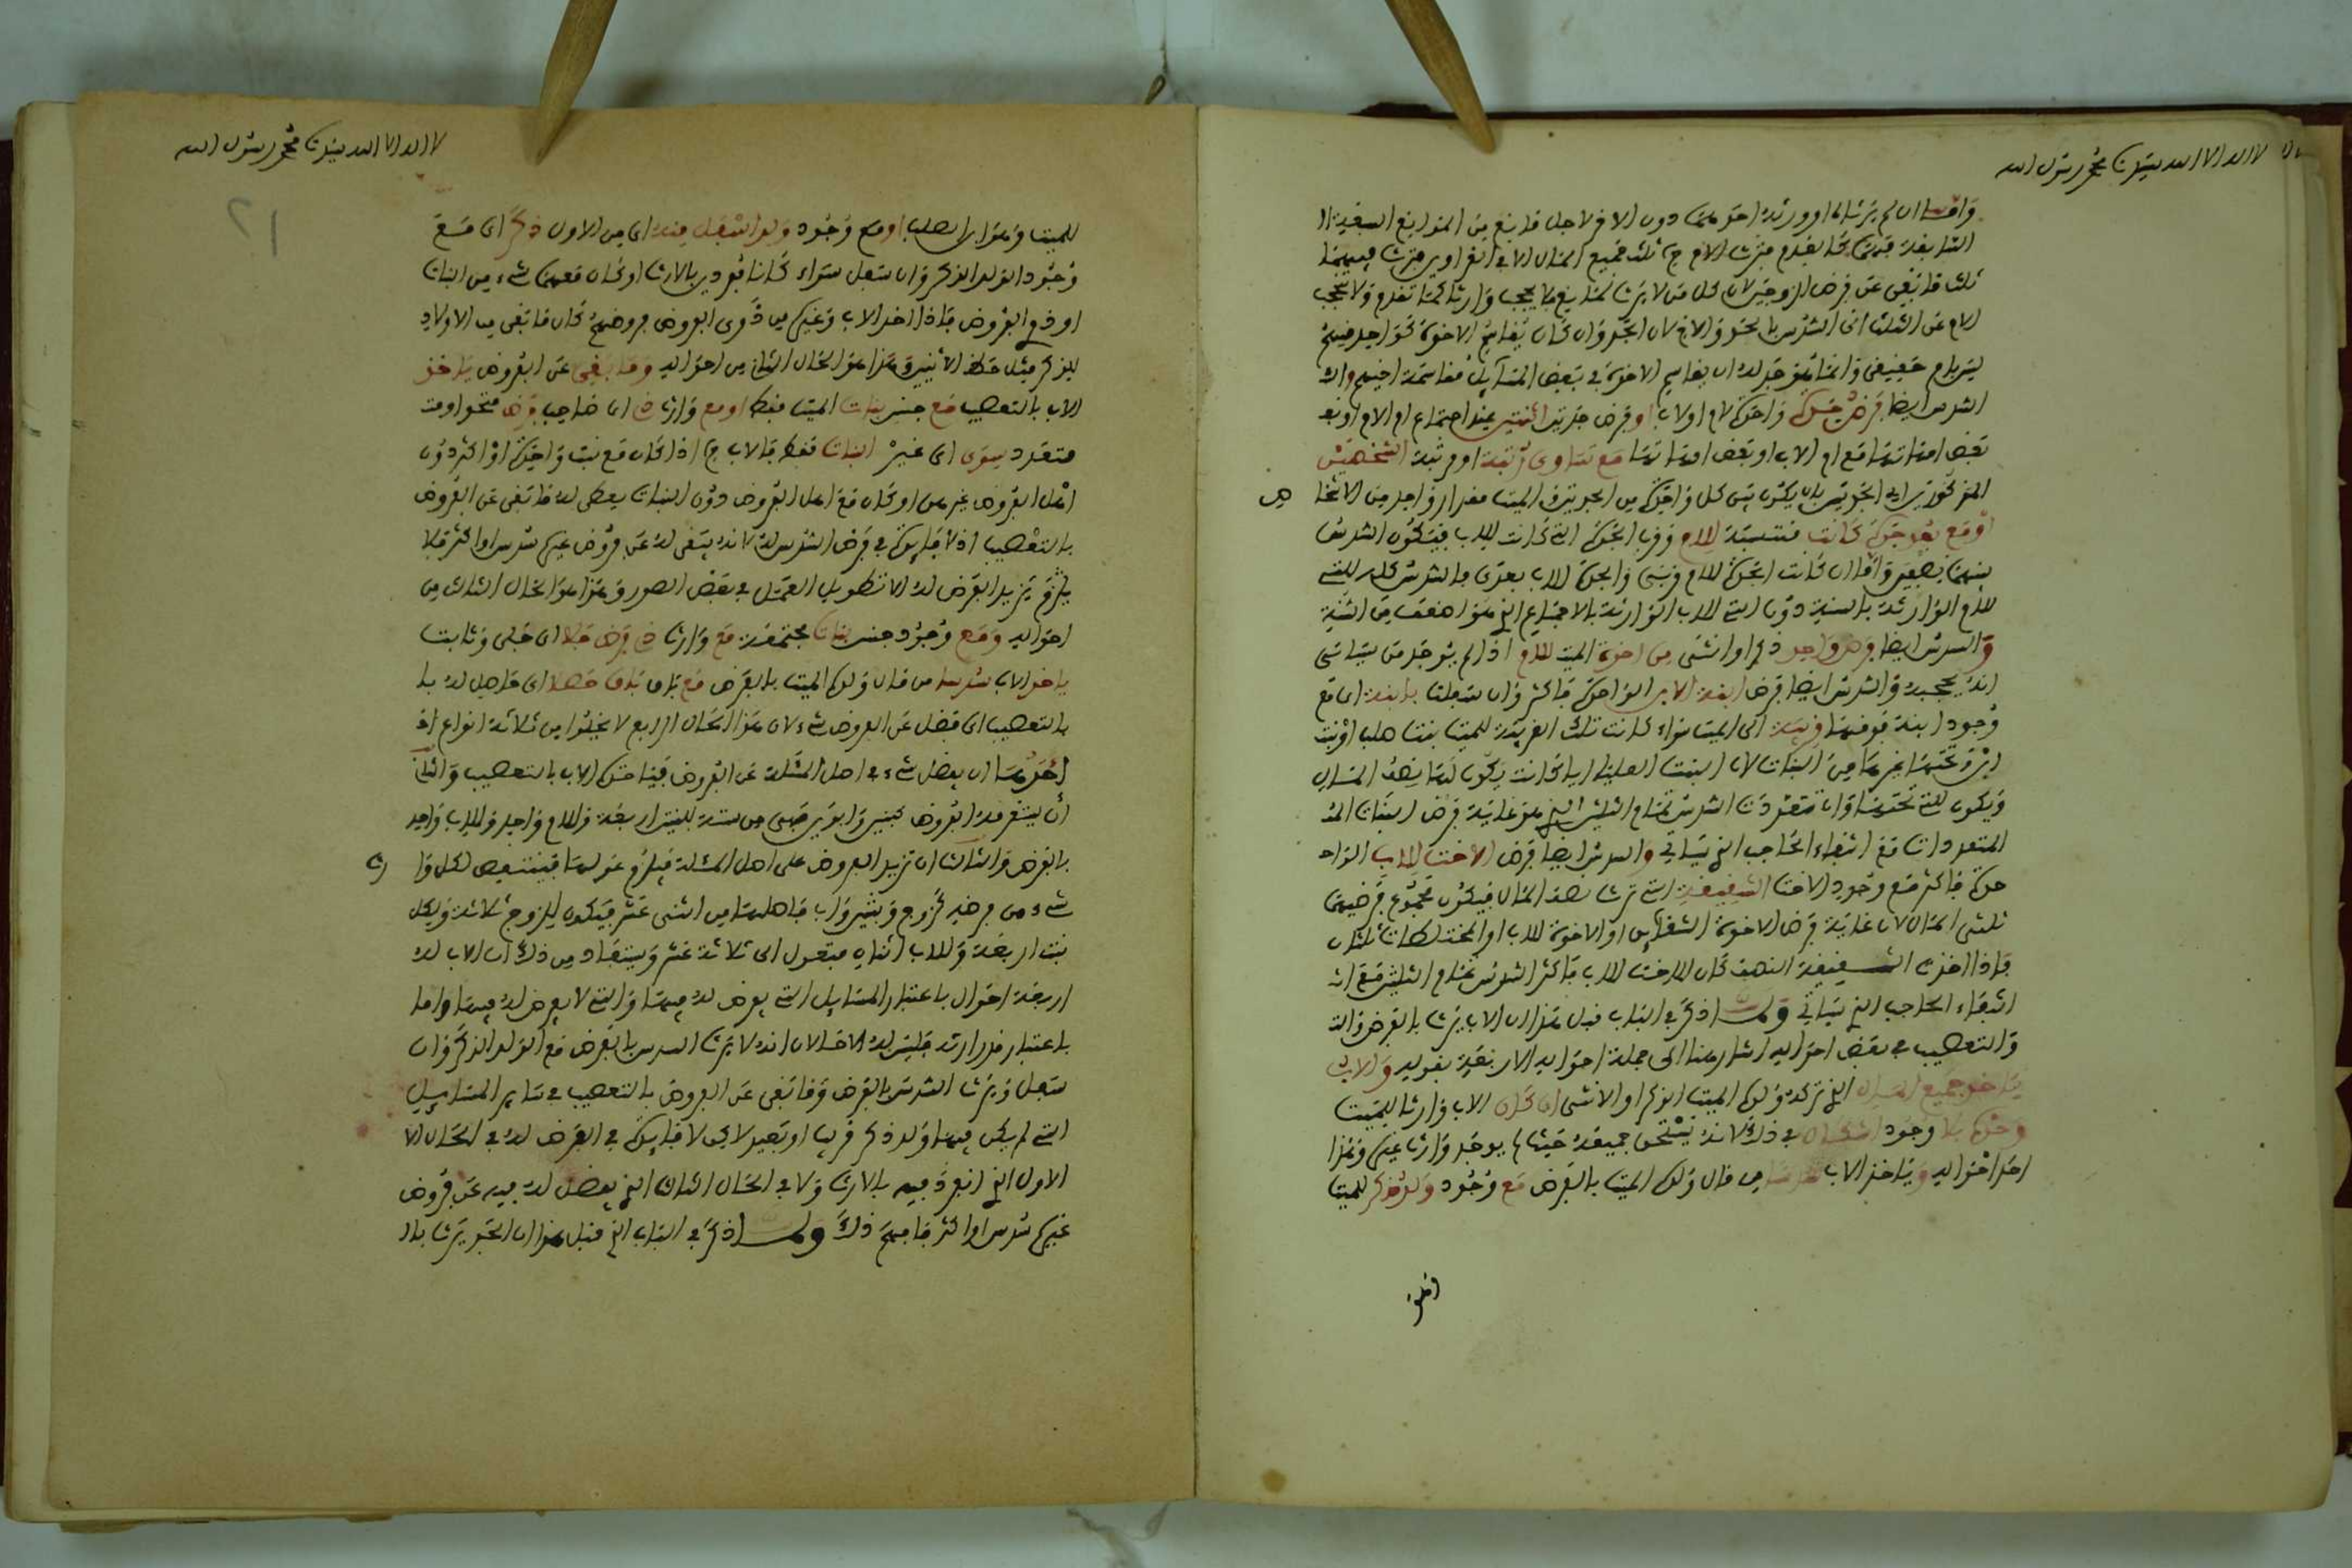 لا اله الا الله سيدنا محمد رسول الله
واما ان لم يرثا او ورث احدهما دون الاخر لاجل مانع من الموانع
السابقة فيهما كما تقدم فترث الام ثلث جميع المال الا في الغراوين فترث فيهما
ثلث ما بقي عن فرض الزوجين لان كل من لا يرث لمانع لا يحجب وارثا كما تقدم ولا يحجب
الام عن الثلث الى السدس بالجد والاخ لان الجد وان كان يقاسم الاخوة كواحد منهم
ليس باخ حقيقي وانما له ان يقاسم الاخوة في بعض المسائل مقاسمة اخيهم وال
السدس ايضا فرض جدة واحدة لام او لاب او فرض جدتين اثنتين عند اجتماع ام الام او
بعض امهاتها مع ام الاب او بعض امهاتها مع تساوي رتبة او مرتبة الشخصين
المذكورتين اي الجدتين بان يكون بين كل واحدة من الجدتين والميت مقدار واحد من الاشخا
ص
او مع بعد جدة كانت منتسبة للام وقرب الجدة التي كانت للاب فيكون السدس
بينهما نصفين واما ان كانت الجدة للام قربى والجدة للاب بعدى فالسدس كله للتي
للام الوارثة بالسنة دون التي للاب الوارثة بالاجتماع الذي هو اضعف من السنة
والسدس ايضا فرض واحد ذكر او انثى من اخوة الميت للام اذا لم يوجد من سياتي
انه يحجبه والسدس ايضا فرض ابنة الابن الواحدة فاكثر وان سفلت بابنة اي مع
وجود ابنة فوقها قريبة الى الميت سواء كانت تلك القريبة للميت بنت صلب او بنت
ابن وتحتها غيرها من البنات لان البنت العليا ايا كانت يكون لها نصف المال
ويكون للتي تحتها وان تعددت السدس تمام الثلثين الذي هو غاية فرض البنات
المتعددات مع انتفاء الحاجب الذي سياتي والسدس ايضا فرض الاخت للاب الواحد
فاكثر مع وجود الاخت الشقيقة التي ترث نصف المال فيكون مجموع فرضيهما
ثلثي المال لان غاية فرض الاخوة الشقائق او الاخوة للاب او المختلطات ثلثان
فاذا اخذت الشقيقة النصف كان للاخت للاب فاكثر السدس تمام الثلثين مع
انتفاء الحاجب الذي سياتي ولما ذكر في الباب قبل هذا ان الاب يرث بالفرض
والتعصيب في بعض احواله اشار هنا الى جملة احواله الاربعة بقوله والاب
ياخذ جميع المال الذي تركه ولده الميت الذكر او الانثى ان كان الاب وارثا للميت
وحده بلا وجود في ذلك لانه يستحق جميعه حيث لم يوجد وارث غيره وهذا
احد احواله وياخذ الاب سدسا من مال ولده الميت بالفرض مع وجود ولد ذكر للميت
لا اله الا الله سيدنا محمد رسول الله
٢١
للميت وهو ابن الصلب او مع وجود ولد اسفل منه اي من الاول ذكر اي مع
وجود الولد الذكر وان سفل سواء كانا منفردين بالارث او كان معهما شيء من البنات
او ذوي الفروض فاذا اخذ الاب وغيره من ذوي الفروض فروضهم كان ما بقي من الاولاد
للذكر مثل حظ الانثيين وهذا هو الحال الثاني من احواله وما بقي عن الفروض ياخذ
الاب بالتعصيب مع جنس بنات الميت فقط او مع وارث ذي اي صاحب فرض متحد او
متعدد سوى اي غير البنات فقط فالاب اذا كان مع بنت واحدة او اكثر دون
اهل الفروض غيرهن او كان مع اهل الفروض دون البنات يعطى له ما بقي عن الفروض
بالتعصيب اذ لا فائدة في فرض السدس له لانه يبقى له عن فروض غيره سدس او اكثر فلا
يلزم بزيد الفرض له الا تطويل العمل في بعض الصور وهذا هو الحال الثالث من
احواله ومع وجود جنس بنات مجتمعة مع وارث ذي فرض جلا اي جلى وثابت
ياخذ الاب سدسا من مال ولده الميت بالفرض مع باق حصلا اي حاصل له
بالتعصيب اي فضل عن الفروض شيء لان هذا الحال الرابع لا يخلوا من ثلاثة انواع
احدها ان يفضل شيء في اصل المسئلة عن الفروض فياخذه الاب بالتعصيب والثاني
ان يستغرقه الفروض كبنتين وابوين فهي من ستة للبنتين اربعة وللام واحد وللاب واحد
بالفرض والثالث ان تزيد الفروض على اصل المسئلة فيلزم عولها فينتقص لكل وا
رث
شيء من فرضه كزوج وبنتين واب فاصلها من اثنى عشر فيكون للزوج ثلاثة ولكل
بنت اربعة وللاب اثنان فتعول الى ثلاثة عشر ويستفاد من ذلك ان الاب له
اربعة احوال باعتبار المسائل التي يفرض له فيها والتي لا يفرض له فيها واما
باعتبار قدر ارثه فليس له الا حالان انه لا يرث السدس بالفرض مع الولد الذكر وان
سفل ويرث السدس بالفرض وما بقي عن الفروض بالتعصيب في سائر المسائل
التي لم يكن فيها ولد ذكر قريب او بعيد لا فائدة في الفرض له في الحال
الاول الذي انفرد فيه بالارث ولا في الحال الثالث الذي يفضل له فيه عن فروض
غيره سدس او اكثر فافهم ذلك ولما ذكر في الباب الذي قبل هذا ان الجد يرث